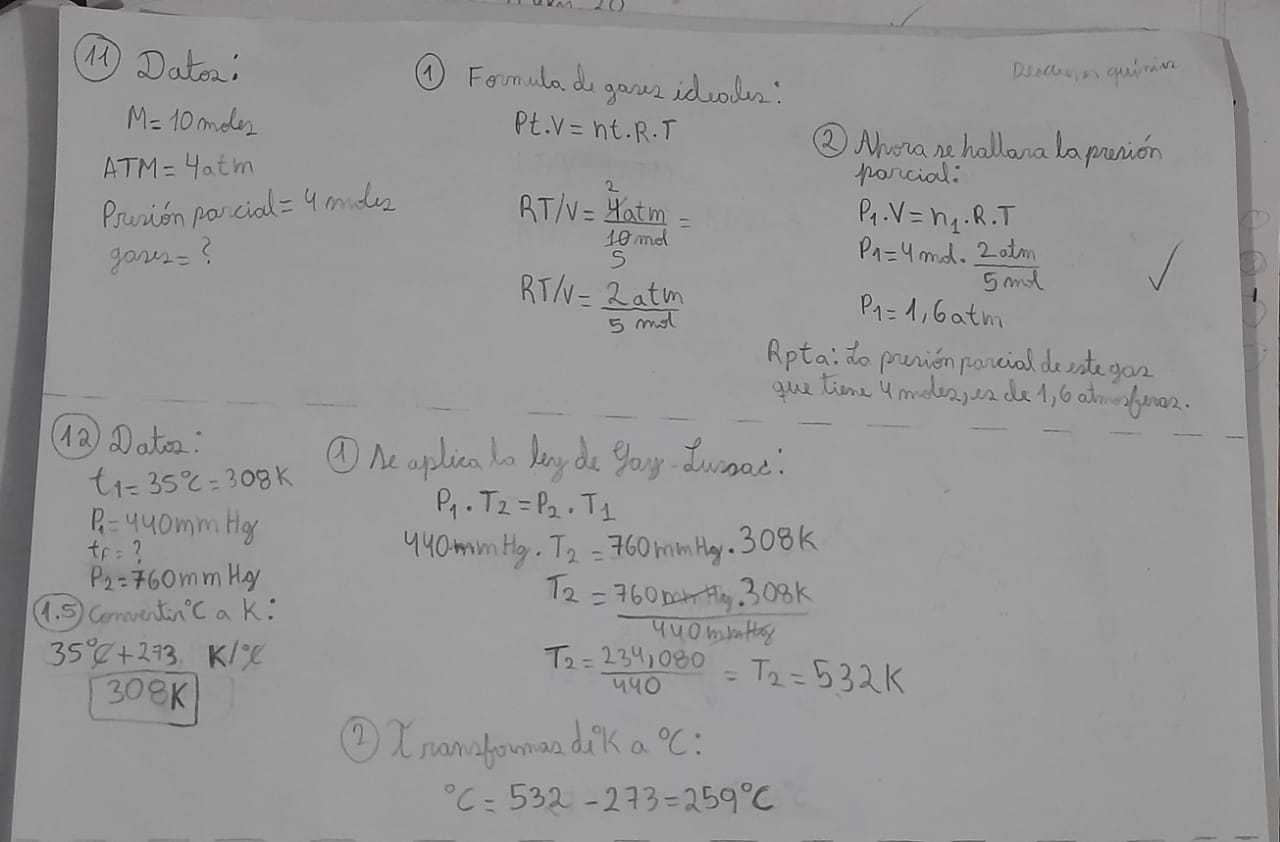 11 Datos:
M=10 moles
ATM=4atm
Presión parcial=4 moles
gases=?
1 Formula de gases ideales:
Pt.V=nt.R.T
RT/V= 4atm/10 mol =
2
5
RT/V= 2atm/5 mol
2 Ahora se hallara la presión
parcial:
P1.V=n1.R.T
P1=4mol. 2atm/5 mol
P1=1,6atm
Rpta: La presión parcial de este gas
que tiene 4 moles, es de 1,6 atmosferas.
12 Datos:
t1=35°C=308K
P1=440mmHg
tf=?
P2=760mmHg
1.5 Convertir °C a K:
35°C+273 K/°C
308K
1 Se aplica la ley de Gay-Lussac:
P1.T2=P2.T1
440mmHg.T2=760mmHg.308K
T2=760mmHg.308K/440mmHg
T2=234,080/440 = T2=532K
2 Transformas de °K a °C:
°C=532-273=259°C